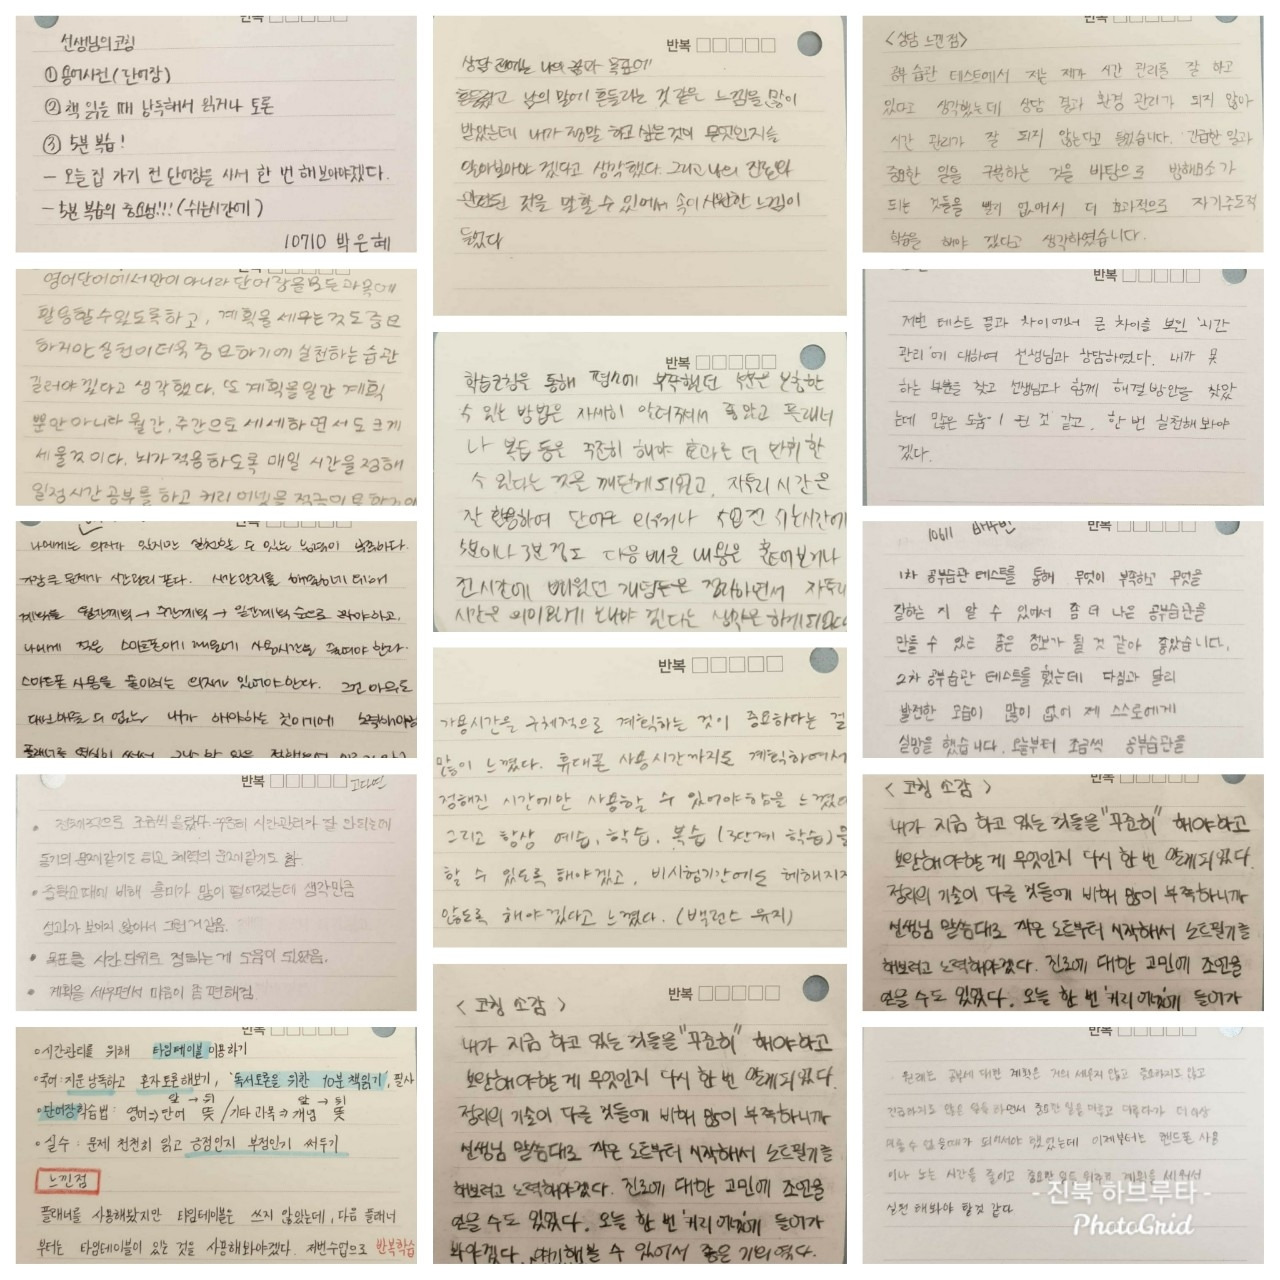 반복
선생님의 코칭
① 용어사전 (단어장)
② 책 읽을 때 낭독해서 읽거나 토론
③ 5분 복습!
- 오늘 집 가기 전 단어장을 사서 한 번 해보아야겠다.
- 5분 복습의 중요성!!! (쉬는시간에)
10710 박은혜
영어단어에서만이 아니라 단어장을 모든 과목에
활용할 수 있도록 하고, 계획을 세우는 것도 중요
하지만 실천이 더욱 중요하기에 실천하는 습관
길러야 겠다고 생각했다. 또 계획을 일간 계획
뿐만 아니라 월간, 주간으로 세세하면서도 크게
세울 것이다. 뇌가 적응하도록 매일 시간을 정해
일정시간 공부를 하고
나에게는 의지가 있지만 실천할 수 있는 능력이 부족하다.
가장 큰 문제가 시간관리 같다. 시간관리를 해결하기 위해
계획을 월간계획 → 주간계획 → 일간계획 순으로 짜야하고,
나에게 적은 스마트폰이기 때문에 사용시간을 줄여야 한다.
스마트폰 사용을 줄이려는 의지가 있어야 한다. 그건 아무도
내가 해야하는 것이기에
반복
전체적으로 조금씩 올랐다. 꾸준히 시간관리가 잘 안되는데
동기의 문제같기도 하고 체력의 문제같기도 함
중학교 때에 비해 흥미가 많이 떨어졌는데 생각만큼
성과가 보이지 않아서 그런거 같음.
목표를 시간 단위로 정하는 게 도움이 되었음.
계획을 세우면서 마음이 좀 편해짐
○시간관리를 위해 타임테이블 이용하기
○국어: 지문 낭독하고 혼자 토론해보기, '독서토론을 위한 10분 책읽기', 필사
앞 → 뒤 앞 → 뒤
○단어장학습법: 영어 ⇒ 단어 뜻 / 기타 과목 ⇒ 개념 뜻
○실수: 문제 천천히 읽고 긍정인지 부정인지 써두기
느낀점
플래너를 사용해봤지만 타임테이블은 쓰지 않았는데, 다음 플래너
부터는 타임테이블이 있는 것을 사용해봐야겠다. 저번수업으로 반복학습
반복
상담 전에는 나의 꿈과 목표에
흔들리고 남의 말에 흔들리는 것 같은 느낌을 많이
받았는데 내가 정말 하고 싶은 것이 무엇인지를
알아보아야 겠다고 생각했다. 그리고 나의 진로와
관련된 것을 말할 수 있어서 속이 시원한 느낌이
들었다
반복
학습코칭을 통해 평소에 부족했던 부분을 보충할
수 있는 방법을 자세히 알려주셔서 좋았고 플래너
나 복습 등은 꾸준히 해야 효과를 더 발휘 할
수 있다는 것을 깨닫게 되었고, 자투리 시간을
잘 활용하여 단어를 외우거나 수업 전 쉬는시간에
5분이나 3분 정도 다음 배울 내용을 훑어보거나
전시간에 배웠던 개념들을 정리하면서 자투리
시간을 의미있게 보내야 겠다는 생각을 하게 되었다
반복
가용시간을 구체적으로 계획하는 것이 중요하다는 걸
많이 느꼈다. 휴대폰 사용시간까지도 계획하여서
정해진 시간에만 사용할 수 있어야함을 느꼈다
그리고 항상 예습, 학습, 복습 (3단계 학습)을
할 수 있도록 해야겠고, 비시험기간에도 헤해지지
않도록 해야겠다고 느꼈다. (밸런스 유지)
반복
< 코칭 소감 >
내가 지금 하고 있는 것들을 "꾸준히" 해야하고
보완해야할 게 무엇인지 다시 한 번 알게되었다.
정리의 기술이 다른 것들에 비해 많이 부족하니까
선생님 말씀대로 작은 노트부터 시작해서 노트필기를
해보려고 노력해야겠다. 진로에 대한 고민에 조언을
얻을 수도 있었다. 오늘 한 번 '커리어넷'에 들어가
봐야겠다. 얘기해볼 수 있어서 좋은 기회였다.
반복
<상담 느낀점>
공부 습관 테스트에서 저는 제가 시간 관리를 잘 하고
있다고 생각했는데 상담 결과 환경 관리가 되지 않아
시간 관리가 잘 되지 않는다고 들었습니다. 긴급한 일과
중요한 일을 구분하는 것을 바탕으로 방해요소가
되는 것들을 빨리 없애서 더 효과적으로 자기주도적
학습을 해야 겠다고 생각하였습니다.
반복
저번 테스트 결과 차이에서 큰 차이를 보인 '시간
관리'에 대하여 선생님과 상담하였다. 내가 못
하는 부분을 찾고 선생님과 함께 해결방안을 찾았
는데 많은 도움이 된 것 같고, 한 번 실천해 봐야
겠다.
반복
10611 배수빈
1차 공부습관 테스트를 통해 무엇이 부족하고 무엇을
잘하는 지 알 수 있어서 좀 더 나은 공부습관을
만들 수 있는 좋은 정보가 될 것 같아 좋았습니다.
2차 공부습관 테스트를 했는데 다짐과 달리
발전한 모습이 많이 없어 제 스스로에게
실망을 했습니다. 오늘부터 조금씩 공부습관을
< 코칭 소감 >
내가 지금 하고 있는 것들을 "꾸준히" 해야하고
보완해야할 게 무엇인지 다시 한 번 알게되었다.
정리의 기술이 다른 것들에 비해 많이 부족하니까
선생님 말씀대로 작은 노트부터 시작해서 노트필기를
해보려고 노력해야겠다. 진로에 대한 고민에 조언을
얻을 수도 있었다. 오늘 한 번 '커리어넷'에 들어가
반복
원래는 공부에 대한 계획은 거의 세우지 않고 중요하지도 않고
긴급하지도 않은 일을 하면서 중요한 일을 미루고 미루다가 더 이상
미룰 수 없을때가 되어서야 했었는데 이제부터는 핸드폰 사용
이나 노는 시간을 줄이고 중요한 일을 위주로 계획을 세워서
실천 해봐야 할것 같다
- 진북 하브루타 -
PhotoGrid